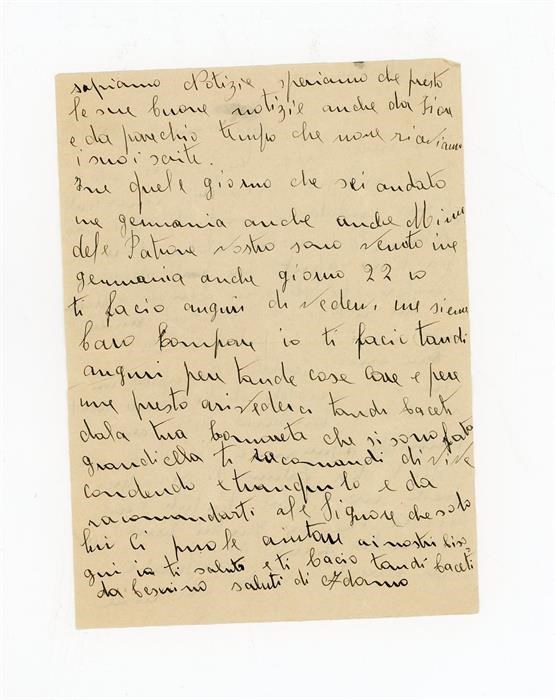 sapiamo Notizie speriamo che presto
le sue buone notizie anche da Fiore
e da parechio tempo che none riaviamo
i suoi scrite.
Ine quele giorno che sei andato
ine germania anche anche
dele Patrone vostro sono venuto ine
germania anche giorno 22 io
ti facio anguri di vederci ine sieme
Caro Compare io ti facio tandi
anguri pere tande cose care e pere
une presto arivederci tandi baceti
dala tua Comareta che si sono fata
grandicela ti racomandi di vive
condendo e tranquilo e da
racomandarti ale Signore che solo
lui ci puole aiutare ai nostri biso-
gni io ti saluto e ti bacio tandi baceti
da saluti di Adamo